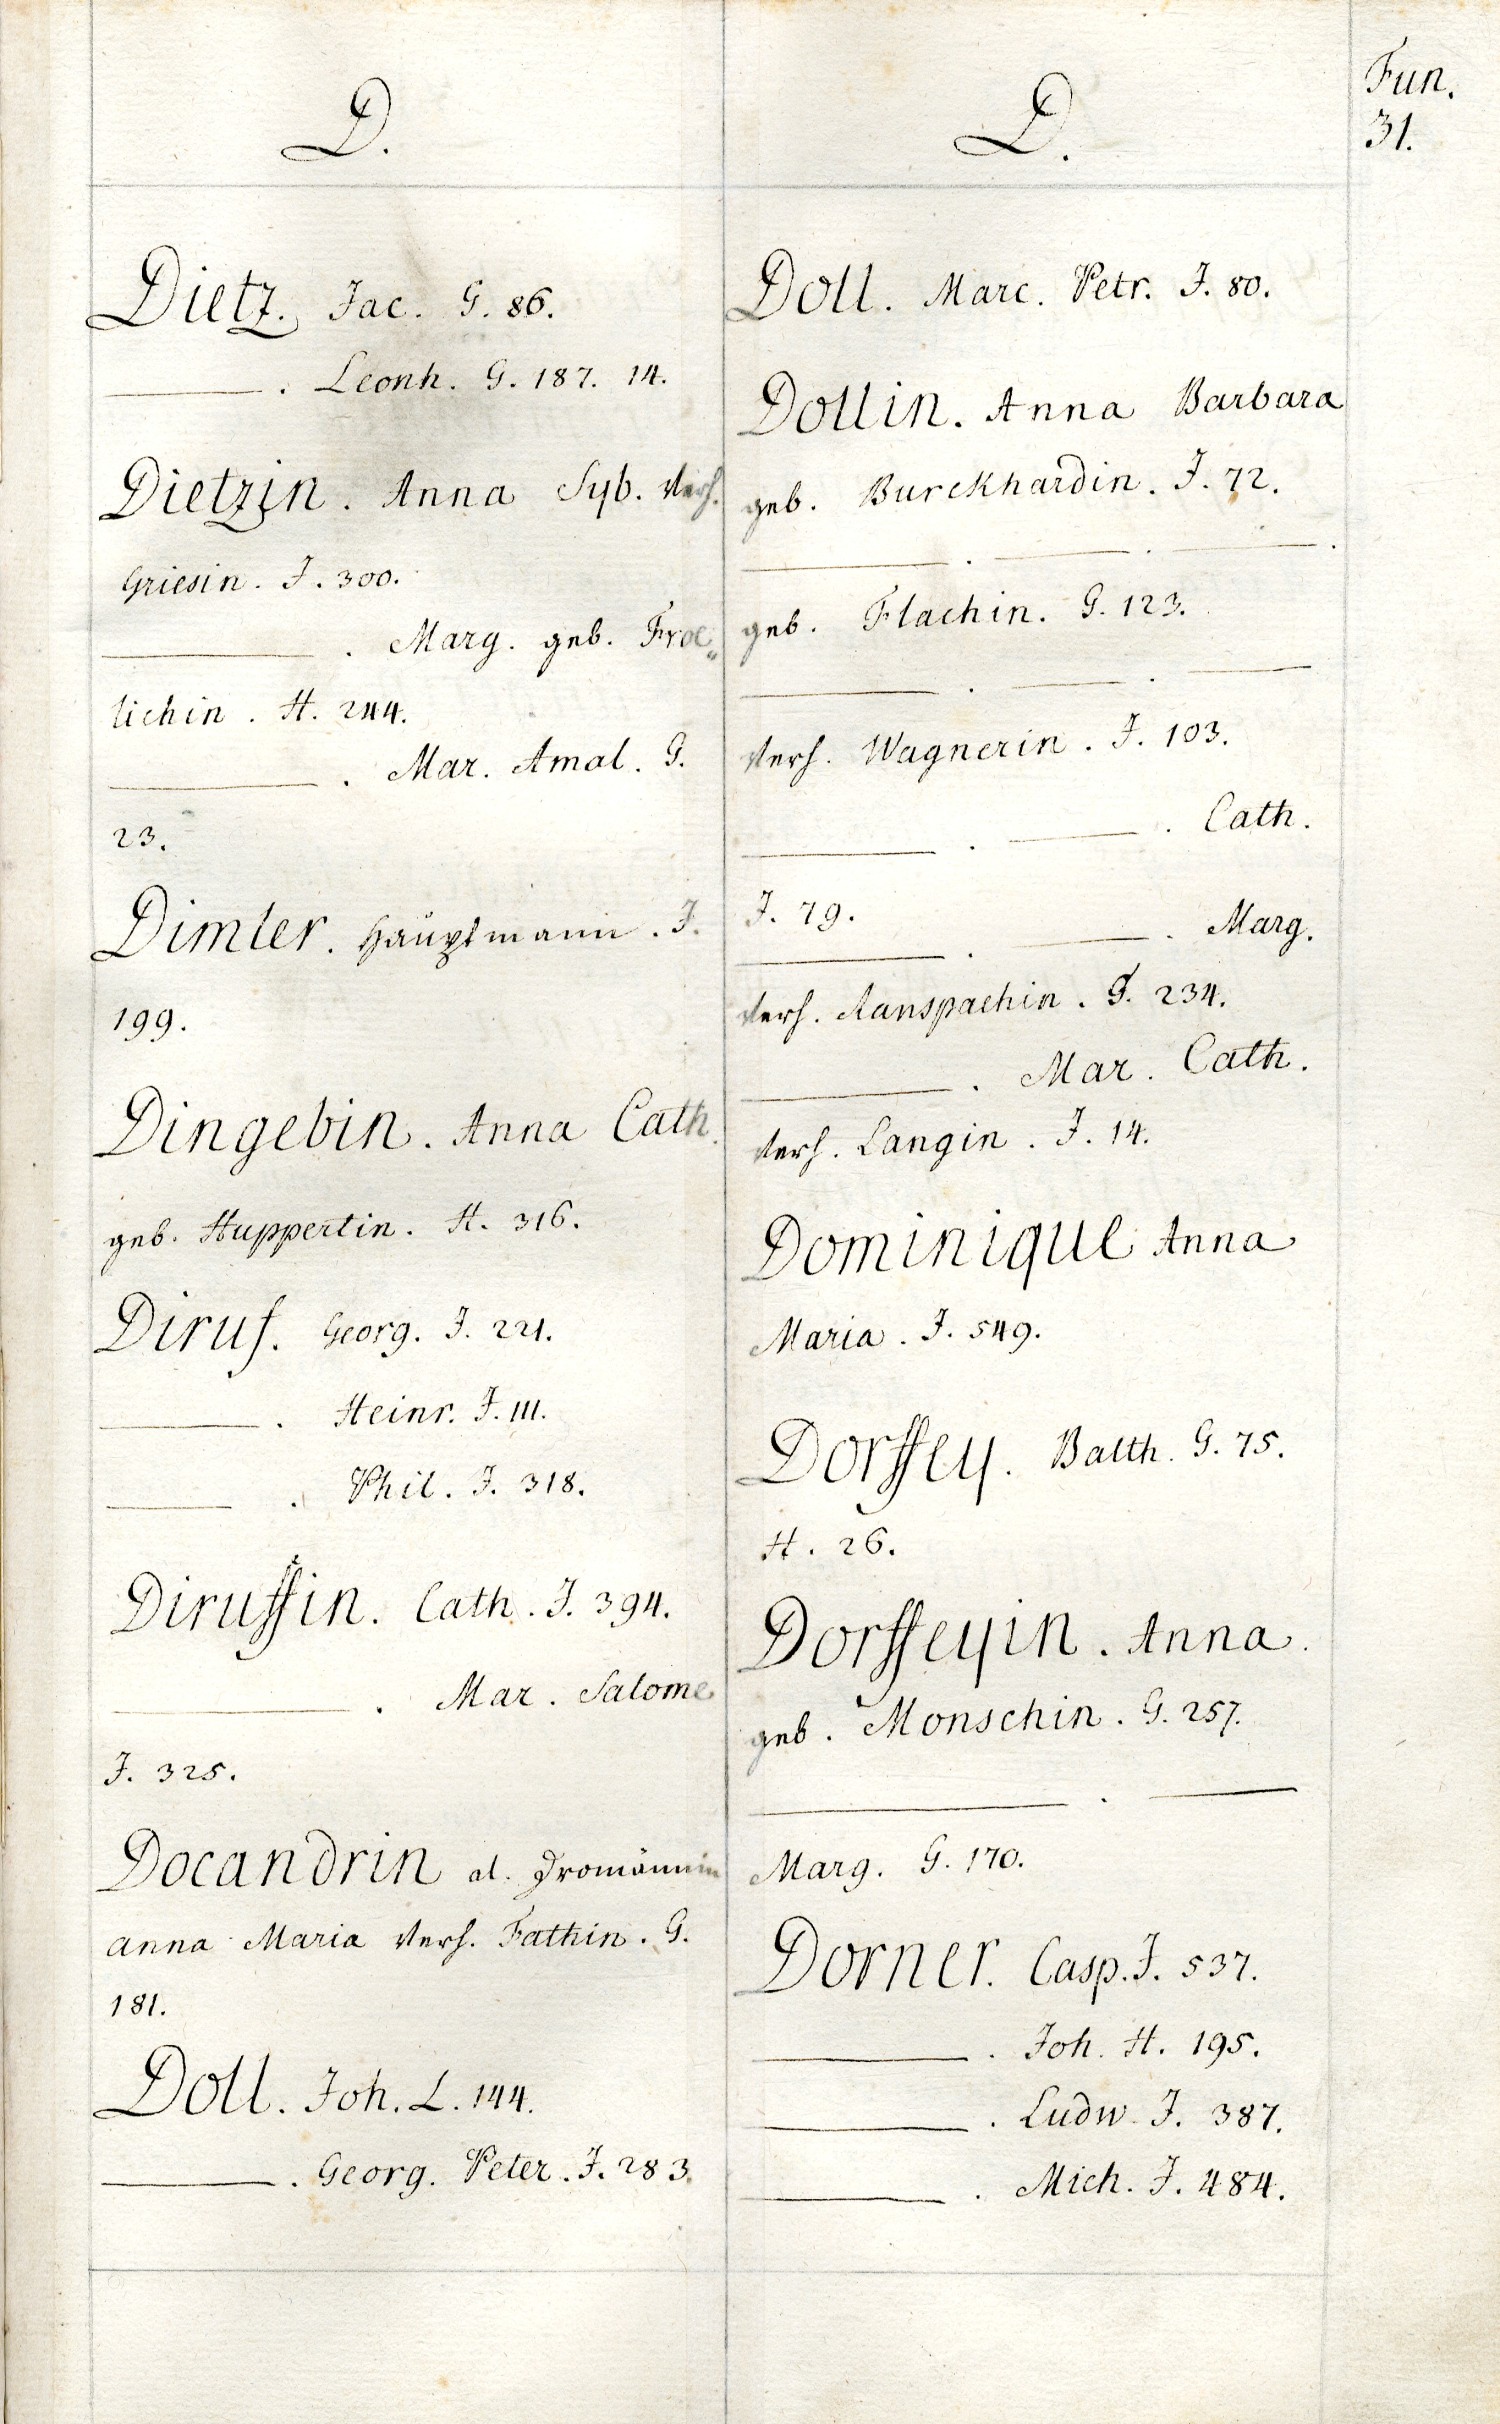 D.
Dietz. Jac. G. 86.
———. Leonh. G. 187. 14.
Dietzin. Anna Syb. verh.
Griesin. J. 300.
———. Marg. geb. Froe„
lichin. H. 244.
———. Mar. Amal. G.
23.
Dimler. Hauptmann. J.
199.
Dingebin. Anna Cath.
geb. Huppertin. H. 316.
Diruf. Georg. J. 221.
———. Heinr. J. 111.
———. Phil. J. 318.
Diruffin. Cath. J. 394.
———. Mar. Salome
J. 325.
Docandrin al. Dromännin
anna Maria verh. Fathin. G.
181.
Doll. Joh. L. 144.
———. Georg. Peter. J. 283.
D.
Doll. Marc. Petr. J. 80.
Dollin. Anna Barbara
geb. Burckhardin. J. 72.
———. ———. ———.
geb. Flachin. G. 123.
———. ———. ———
verh. Wagnerin. J. 103.
———. ———. Cath.
J. 79.
———. ———. Marg.
verh. Aanspachin. G. 234.
———. Mar. Cath.
verh. Langin. J. 14.
Dominique Anna
Maria. J. 549.
Dorffey. Balth. G. 75.
H. 26.
Dorffeyin. Anna.
geb. Monschin. G. 257.
———. ———
Marg. G. 170.
Dorner. Casp. J. 537.
———. Joh. H. 195.
———. Ludw. J. 387.
———. Mich. J. 484.
Fun.
31.